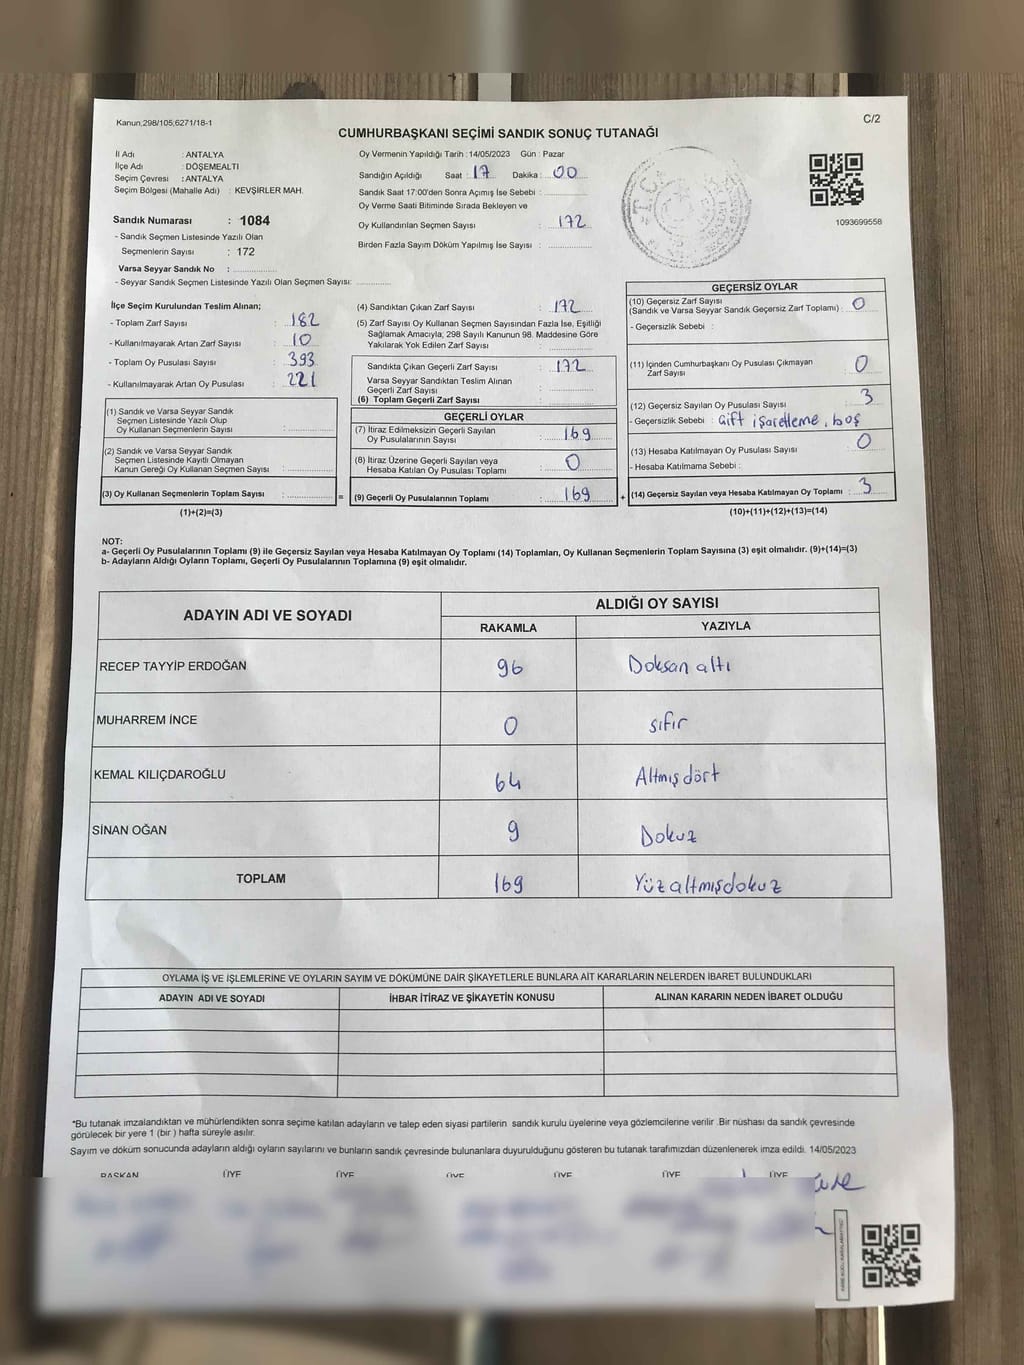 Kanun,298/105,6271/18-1
C/2
CUMHURBAŞKANI SEÇİMİ SANDIK SONUÇ TUTANAĞI
İl Adı : ANTALYA
İlçe Adı : DÖŞEMEALTI
Seçim Çevresi : ANTALYA
Seçim Bölgesi (Mahalle Adı) : KEVŞİRLER MAH.
Sandık Numarası : 1084
- Sandık Seçmen Listesinde Yazılı Olan
Seçmenlerin Sayısı : 172
Varsa Seyyar Sandık No :
- Seyyar Sandık Seçmen Listesinde Yazılı Olan Seçmen Sayısı:
Oy Vermenin Yapıldığı Tarih :14/05/2023 Gün : Pazar
Sandığın Açıldığı Saat : 17 Dakika : 00
Sandık Saat 17:00'den Sonra Açımış İse Sebebi :
Oy Verme Saati Bitiminde Sırada Bekleyen ve
Oy Kullandırılan Seçmen Sayısı : 172
Birden Fazla Sayım Döküm Yapılmış İse Sayısı :
T.C.
1093699558
İlçe Seçim Kurulundan Teslim Alınan;
- Toplam Zarf Sayısı : 182
- Kullanılmayarak Artan Zarf Sayısı : 10
- Toplam Oy Pusulası Sayısı : 393
- Kullanılmayarak Artan Oy Pusulası : 221
(1) Sandık ve Varsa Seyyar Sandık
Seçmen Listesinde Yazılı Olup
Oy Kullanan Seçmenlerin Sayısı :
(2) Sandık ve Varsa Seyyar Sandık
Seçmen Listesinde Kayıtlı Olmayan
Kanun Gereği Oy Kullanan Seçmen Sayısı :
(3) Oy Kullanan Seçmenlerin Toplam Sayısı : =
(1)+(2)=(3)
(4) Sandıktan Çıkan Zarf Sayısı : 172
(5) Zarf Sayısı Oy Kullanan Seçmen Sayısından Fazla İse, Eşitliği
Sağlamak Amacıyla, 298 Sayılı Kanunun 98. Maddesine Göre
Yakılarak Yok Edilen Zarf Sayısı :
Sandıkta Çıkan Geçerli Zarf Sayısı : 172
Varsa Seyyar Sandıktan Teslim Alınan
Geçerli Zarf Sayısı :
(6) Toplam Geçerli Zarf Sayısı :
GEÇERLİ OYLAR
(7) İtiraz Edilmeksizin Geçerli Sayılan
Oy Pusulalarının Sayısı : 169
(8) İtiraz Üzerine Geçerli Sayılan veya
Hesaba Katılan Oy Pusulası Toplamı : 0
(9) Geçerli Oy Pusulalarının Toplamı : 169 +
GEÇERSİZ OYLAR
(10) Geçersiz Zarf Sayısı
(Sandık ve Varsa Seyyar Sandık Geçersiz Zarf Toplamı) : 0
- Geçersizlik Sebebi :
(11) İçinden Cumhurbaşkanı Oy Pusulası Çıkmayan
Zarf Sayısı : 0
(12) Geçersiz Sayılan Oy Pusulası Sayısı : 3
- Geçersizlik Sebebi : Çift işaretleme, boş
(13) Hesaba Katılmayan Oy Pusulası Sayısı : 0
- Hesaba Katılmama Sebebi :
(14) Geçersiz Sayılan veya Hesaba Katılmayan Oy Toplamı : 3
(10)+(11)+(12)+(13)=(14)
NOT:
a- Geçerli Oy Pusulalarının Toplamı (9) ile Geçersiz Sayılan veya Hesaba Katılmayan Oy Toplamı (14) Toplamları, Oy Kullanan Seçmenlerin Toplam Sayısına (3) eşit olmalıdır. (9)+(14)=(3)
b- Adayların Aldığı Oyların Toplamı, Geçerli Oy Pusulalarının Toplamına (9) eşit olmalıdır.
ADAYIN ADI VE SOYADI
ALDIĞI OY SAYISI
RAKAMLA YAZIYLA
RECEP TAYYİP ERDOĞAN 96 Doksan altı
MUHARREM İNCE 0 sıfır
KEMAL KILIÇDAROĞLU 64 Altmış dört
SİNAN OĞAN 9 Dokuz
TOPLAM 169 Yüz altmışdokuz
OYLAMA İŞ VE İŞLEMLERİNE VE OYLARIN SAYIM VE DÖKÜMÜNE DAİR ŞİKAYETLERLE BUNLARA AİT KARARLARIN NELERDEN İBARET BULUNDUKLARI
ADAYIN ADI VE SOYADI İHBAR İTİRAZ VE ŞİKAYETİN KONUSU ALINAN KARARIN NEDEN İBARET OLDUĞU
*Bu tutanak imzalandıktan ve mühürlendikten sonra seçime katılan adayların ve talep eden siyasi partilerin sandık kurulu üyelerine veya gözlemcilerine verilir .Bir nüshası da sandık çevresinde
görülecek bir yere 1 (bir ) hafta süreyle asılır.
Sayım ve döküm sonucunda adayların aldığı oyların sayılarını ve bunların sandık çevresinde bulunanlara duyurulduğunu gösteren bu tutanak tarafımızdan düzenlenerek imza edildi. 14/05/2023
BAŞKAN ÜYE ÜYE ÜYE ÜYE ÜYE ÜYE